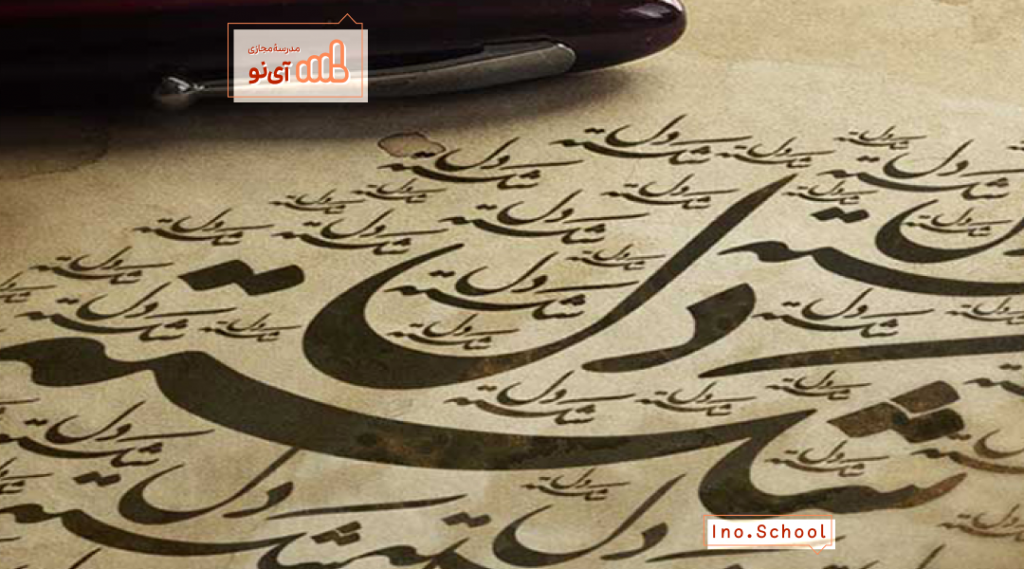 مدرسهٔ مجازی
آی‌نو
دل
شکسته
Ino.School